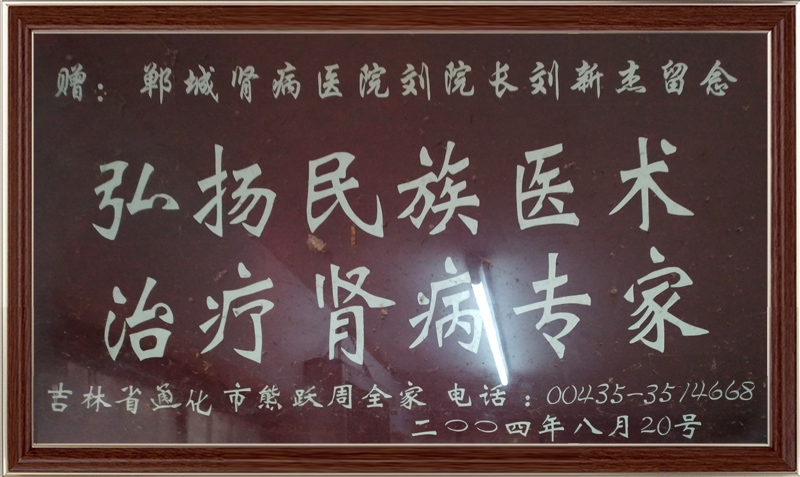 赠：郸城肾病医院刘院长刘新杰留念
弘扬民族医术
治疗肾病专家
吉林省通化市熊跃周全家 电话：00435-3514668
二〇〇四年八月20号